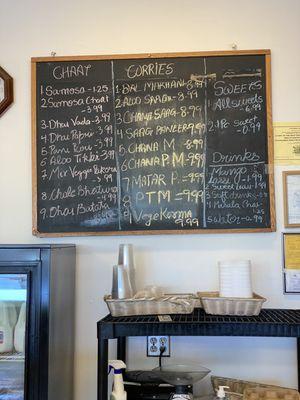 CHAAT
1. Samosa - 1.25
2. Samosa Chaat
- 3.99
3. Dhai Vada - 3.99
4. Dhai Papri - 3.99
5. Pani Puri - 3.99
6. Aloo Tikki - 3.99
7. Mix Veggie Pakora
- 3.99
8. Chole Bhatura
- 6.99
9. Dhai Batata
CURRIES
1. DAL MAKHANI - 8.99
2. Aloo Saag - 8.99
3. Chana Saag - 8.99
4. Saag Paneer 9.99
5. Chana M - 8.99
6. Chana P.M - 9.99
7. MATAR P. = 9.99
8. P T M = 9.99
9. Vege Korma
9.99
SWEETS
1. All Sweets
- 6.99
2. 1 Pc Sweet
- 0.99
Drinks
1. Mango
Lassi - 1.99
2. Sweet Lassi - 1.99
3. Soft drink
4. Masala Chai
1.25
5. water - 0.99